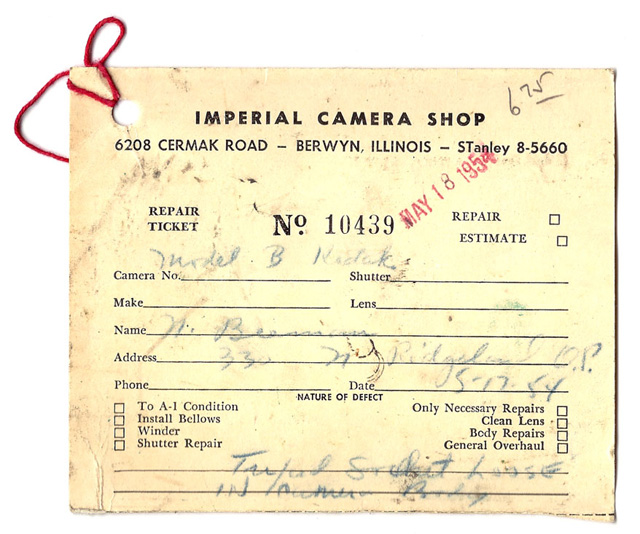 6 75
IMPERIAL CAMERA SHOP
6208 CERMAK ROAD – BERWYN, ILLINOIS – STanley 8-5660
MAY 18 1954
REPAIR TICKET
No 10439
REPAIR
ESTIMATE
Model B Kodak
Camera No. Shutter
Make Lens
Name
Address 330 N Ridgeland O.P.
Phone Date 5-17-54
NATURE OF DEFECT
To A-1 Condition Only Necessary Repairs
Install Bellows Clean Lens
Winder Body Repairs
Shutter Repair General Overhaul
Tripod Socket LOOSE
IN Camera Body